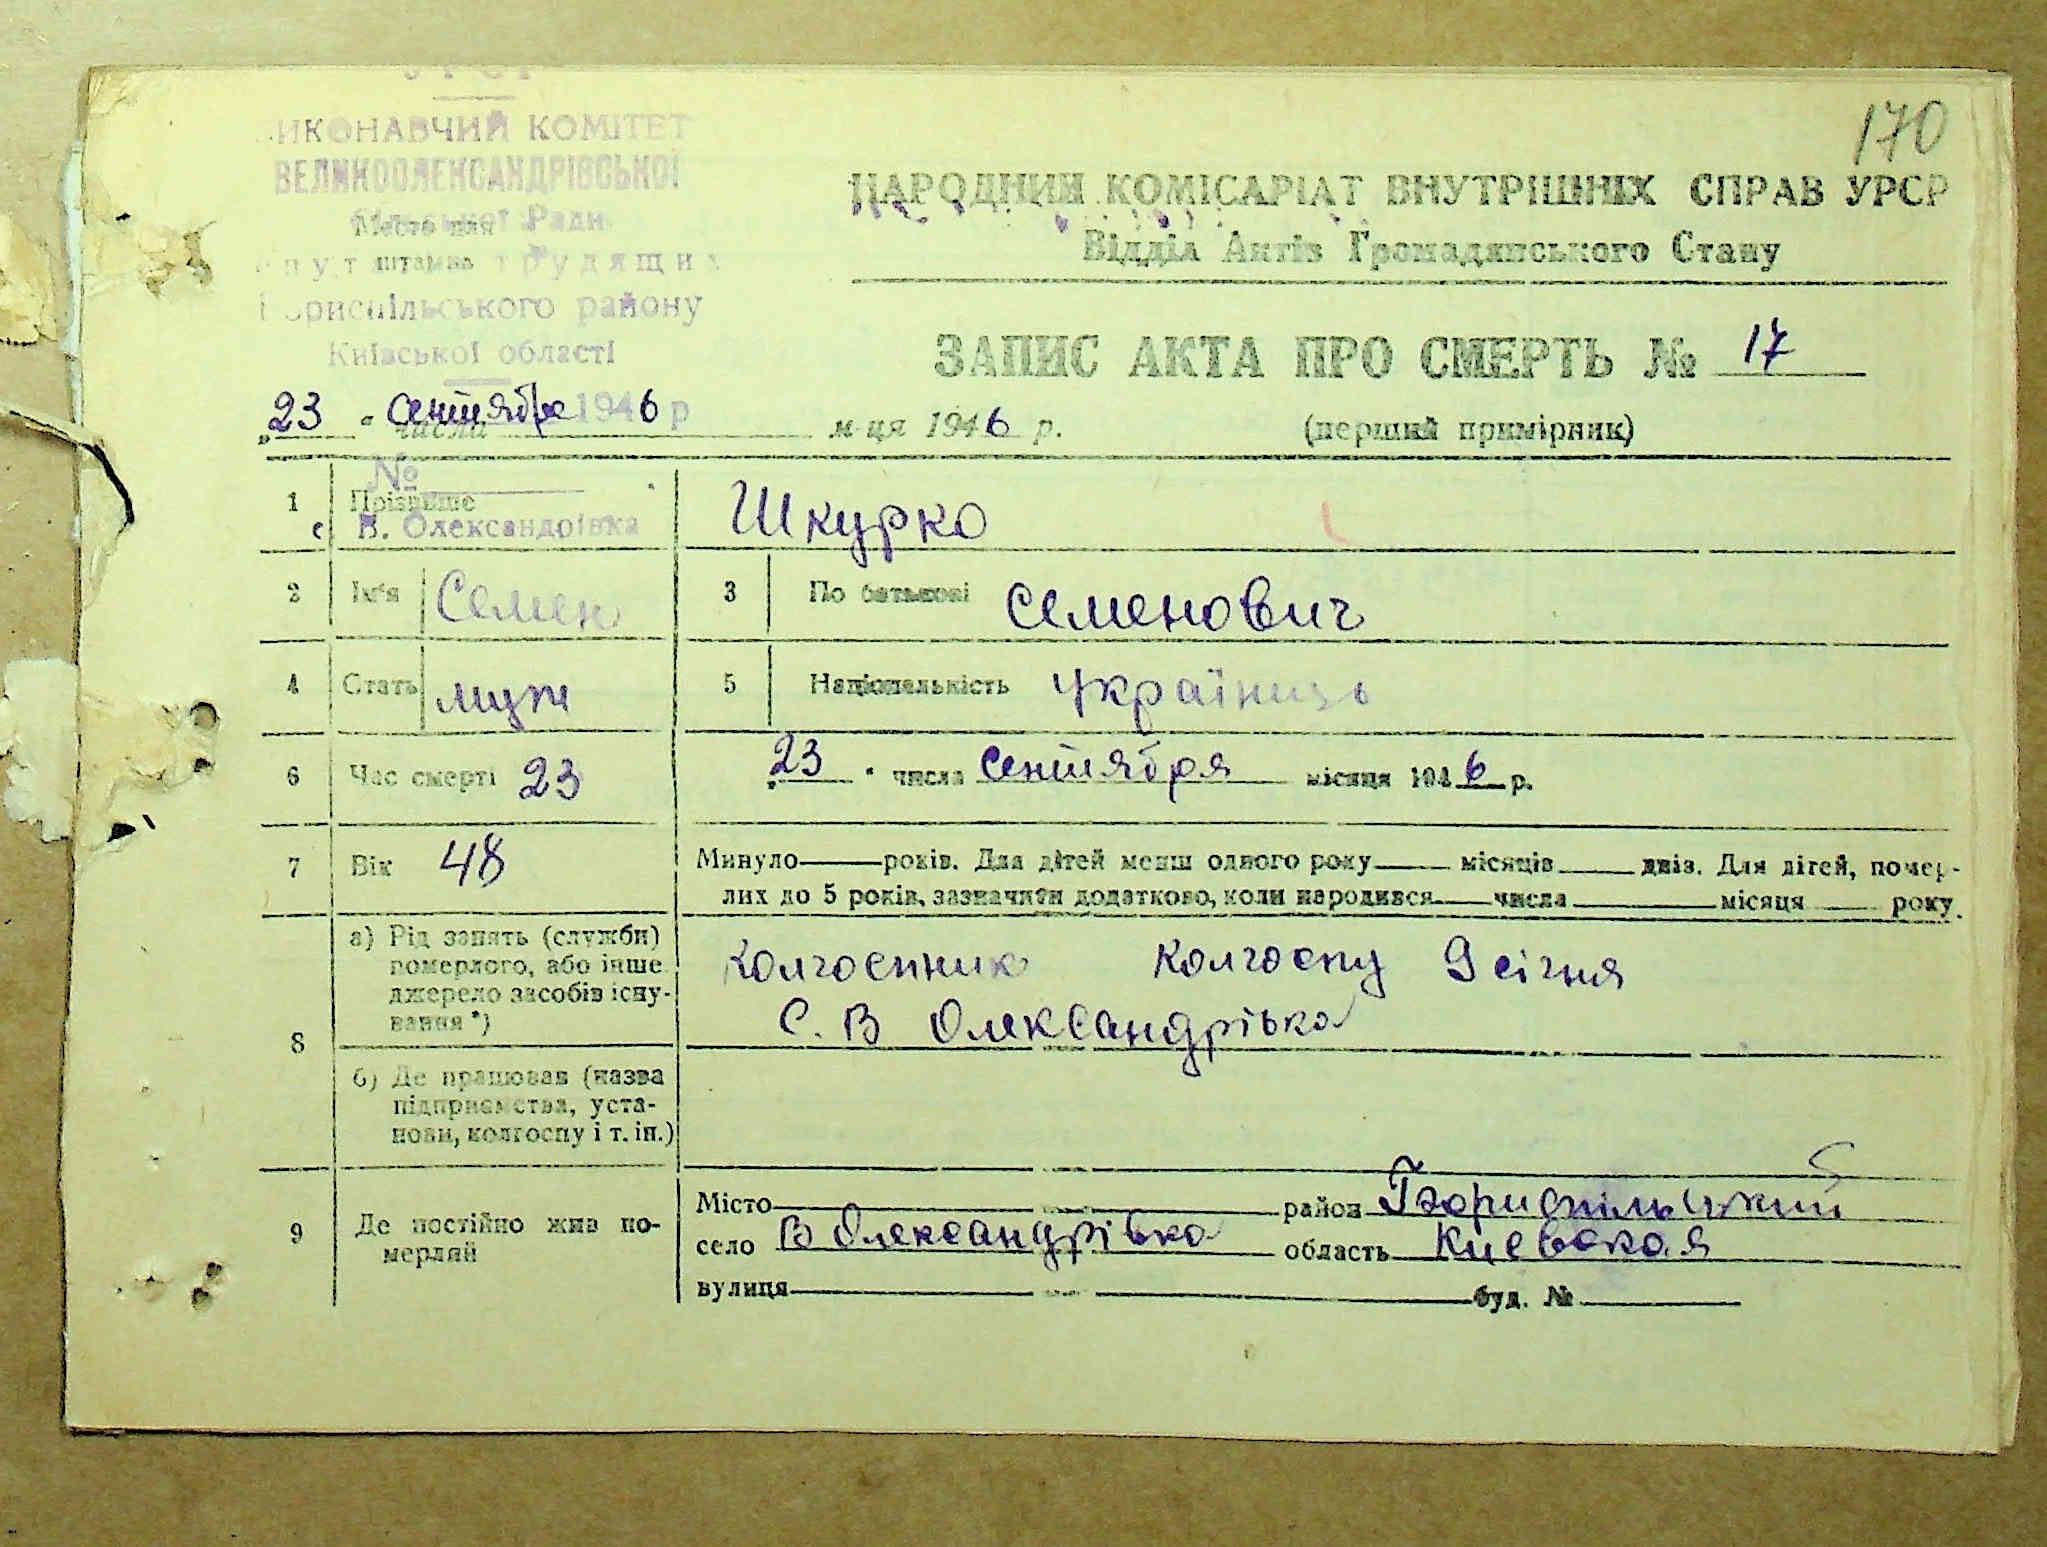 170
УРСР
ИКОНАВЧИЙ КОМІТЕТ
ВЕЛИКООЛЕКСАНДРІВСЬКОЇ
Ради
Місце для
штампа трудящих
Бориспільського району
Київської області
НАРОДНИЙ КОМІСАРІАТ ВНУТРІШНІХ СПРАВ УРСР
Відділ Актів Громадянського Стану
ЗАПИС АКТА ПРО СМЕРТЬ № 17
„23" сентября 1946 р
числа м-ця 1946 р. (перший примірник)
№
1 Прізвище Шкурко
с В. Олександрівка
2 Ім'я Семен 3 По батькові Семенович
4 Стать муж 5 Національність українць
6 Час смерті 23 „23" числа сентября місяця 1946 р.
7 Вік 48 Минуло років. Для дітей менш одного року місяців днів. Для дітей, помер-
лих до 5 років, зазначити додатково, коли народився числа місяця року.
8 а) Рід занять (служби)
померлого, або інше
джерело засобів існу-
вання*)
колгоспник колгоспу 9 січня
с. В Олександрівка
б) Де працював (назва
підприємства, уста-
нови, колгоспу і т. ін.)
9 Де постійно жив по-
мерлий
Місто район Бориспільський
село В Олександрівка область Киевская
вулиця буд. №